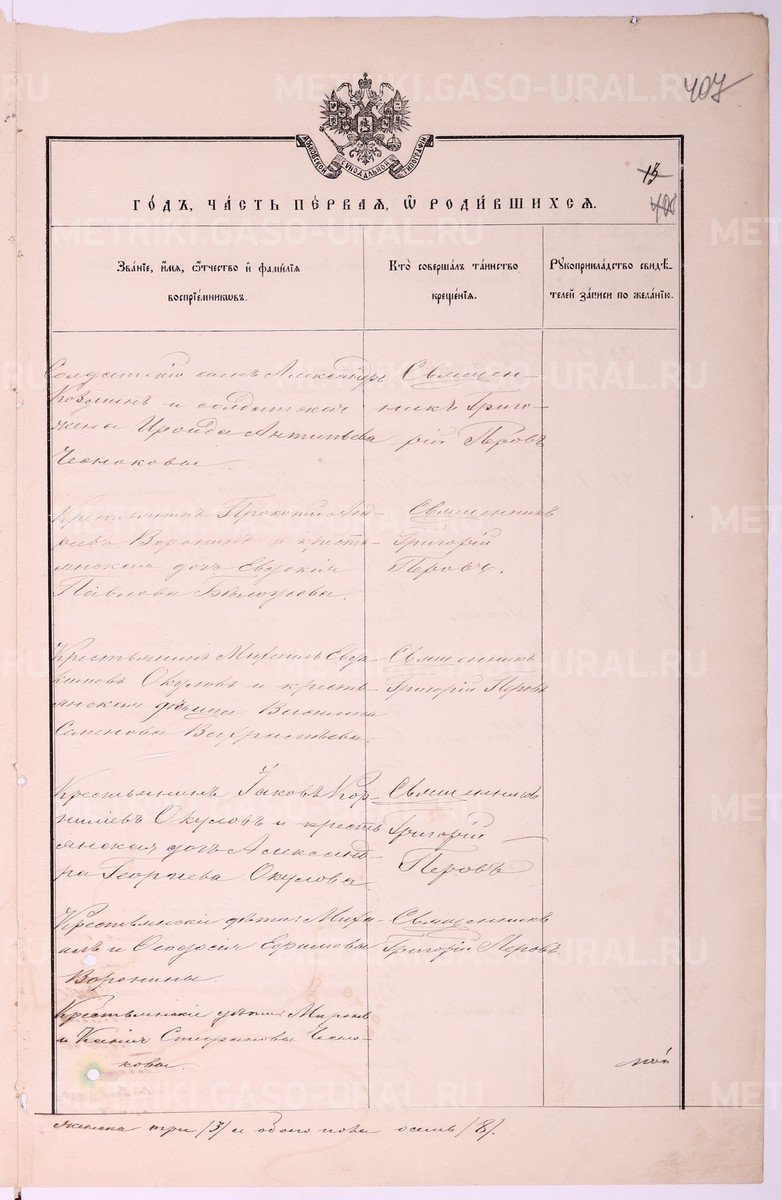 METRIKI.GASO-URAL.RU
407
МОСКОВСКОЙ СѴНОДАЛЬНОЙ ТИПОГРАФІИ
13
ГО́ДЪ, ЧА́СТЬ ПЕ́РВАЯ, Ѿ РОДИ́ВШИХСЯ.
Зва́нїе, и҆́мя, ѻ҆́тчество и҆ фамѝлїя
воспрїе́мникѡвъ.
Кто̀ соверша́лъ та́инство
креще́нїя.
Рꙋкоприкла́дство свидѣ́-
телей за́писи по жела́нїю.
Солдатскій сынъ Александръ
Козьминъ и солдатская
жена Ироида Антипьева
Чесноковы.
Священ-
никъ Григо-
рій Перовъ
Крестьянинъ Прокопій
Воронинъ и кресть-
янская дочь Евдокія
Павлова Бѣлоусова.
Священникъ
Григорій
Перовъ.
Крестьянинъ Михаилъ Евдо-
кимовъ Окуловъ и кресть-
янская дѣвица Василиса
Семенова
Священникъ
Григорій Перовъ
Крестьянинъ Іаковъ Кор-
ниліевъ Окуловъ и кресть
янская дочь Александ-
ра Георгіева Окулова.
Священникъ
Григорій
Перовъ
Крестьянскіе дѣти: Миха-
илъ и Ѳеодосія Ефимовы
Воронины.
Священникъ
Григорій Перовъ
Крестьянскіе дѣти: Миронъ
и Ксенія Стефановы Чесно-
ковы.
женска три /3/ и обоего пола осемь /8/.